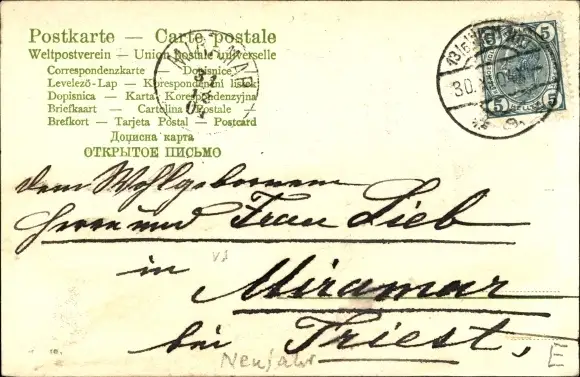 Postkarte — Carte postale
Weltpostverein — Union postale universelle
Correspondenzkarte — Dopisnice
Levelező-Lap — Korespondenčni listek
Dopisnica — Karta Korespondencyjna
Briefkaart — Cartolina Postale —
Brefkort — Tarjeta Postal — Postcard
Дописна карта
ОТКРЫТОЕ ПИСЬМО
MIRAMAR
31
12
04
5 5
5 5
30. XII 04
dem Wohlgeborenen
Herrn und Frau Lieb
in
Miramar
bei Triest,
Neujahr
E